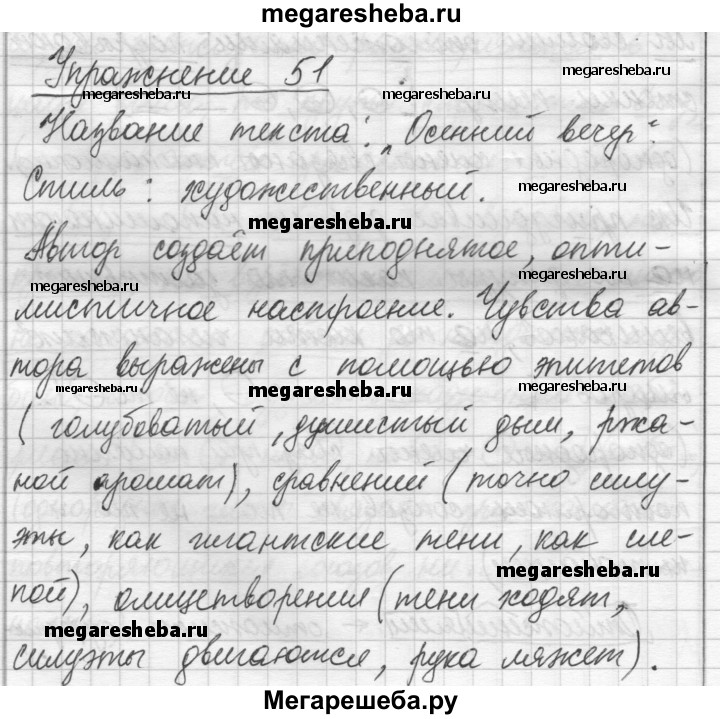 megaresheba.ru
Упражнение 51
megaresheba.ru megaresheba.ru
Название текста: „Осенний вечер“.
Стиль: художественный.
megaresheba.ru
megaresheba.ru
Автор создаёт приподнятое, опти-
megaresheba.ru megaresheba.ru
мистичное настроение. Чувства ав-
тора выражены с помощью эпитетов
megaresheba.ru megaresheba.ru megaresheba.ru
(голубоватый, душистый дым, ржа-
ной аромат), сравнений (точно силу-
эты, как гигантские тени, как сле-
megaresheba.ru
пой), олицетворения (тени ходят,
megaresheba.ru
силуэты двигаются, рука ляжет).
Мегарешеба.ру